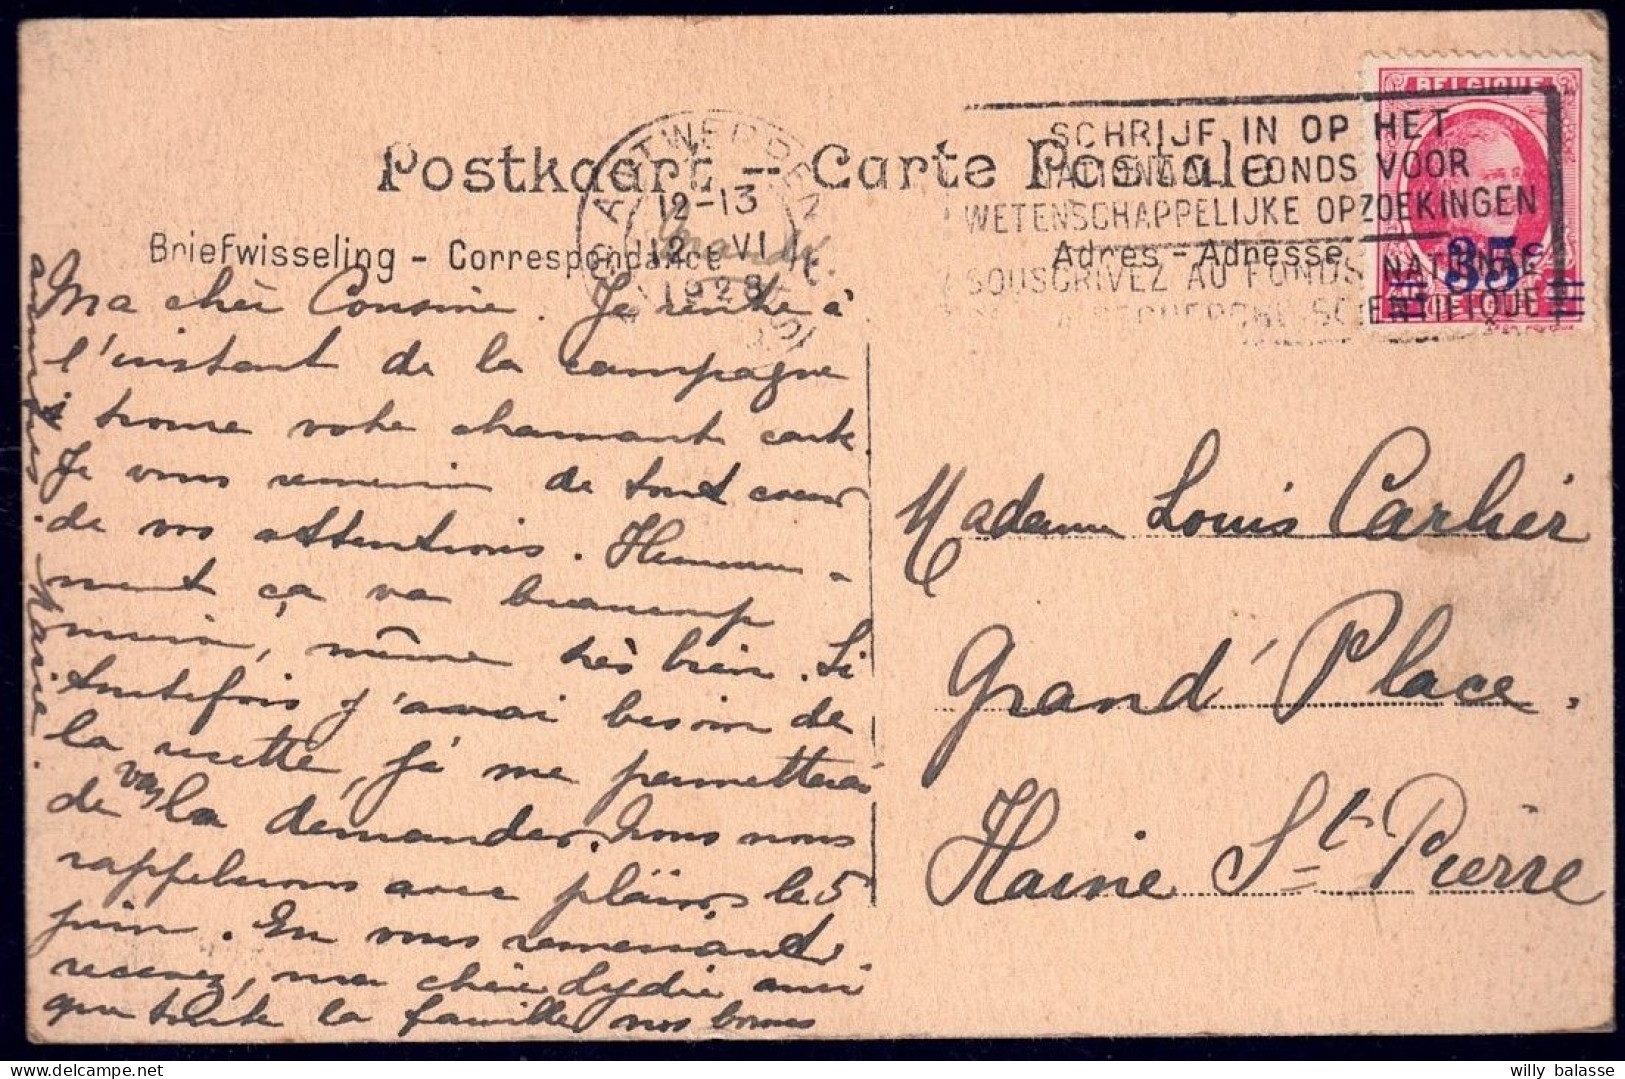 Postkaart - Carte Postale
Briefwisseling - Correspondance
Adres - Adresse
12-13
12 VI
1928
SCHRIJF IN OP HET
NATIONAAL FONDS VOOR
WETENSCHAPPELIJKE OPZOEKINGEN
SOUSCRIVEZ AU FONDS NATIONAL
SCIENTIFIQUE
BELGIQUE
35c
Ma chère Cousine. Je rentre à
l'instant de la campagne
& trouve votre charmante carte.
Je vous remercie de tout cœur
de vos attentions. Heureuse-
ment ça va beaucoup
mieux, même très bien. Si
toutefois j'avai besoin de
la recette, je me permetterai
de vous la demander. Nous nous
rappelerons avec plaisir le 5
juin. En vous remerciant
recevez, ma chère Lydie ainsi
que toute la famille nos bonnes
amitiés. Marie.
Madame Louis Carlier
Grand' Place.
Haine St Pierre
willy balasse